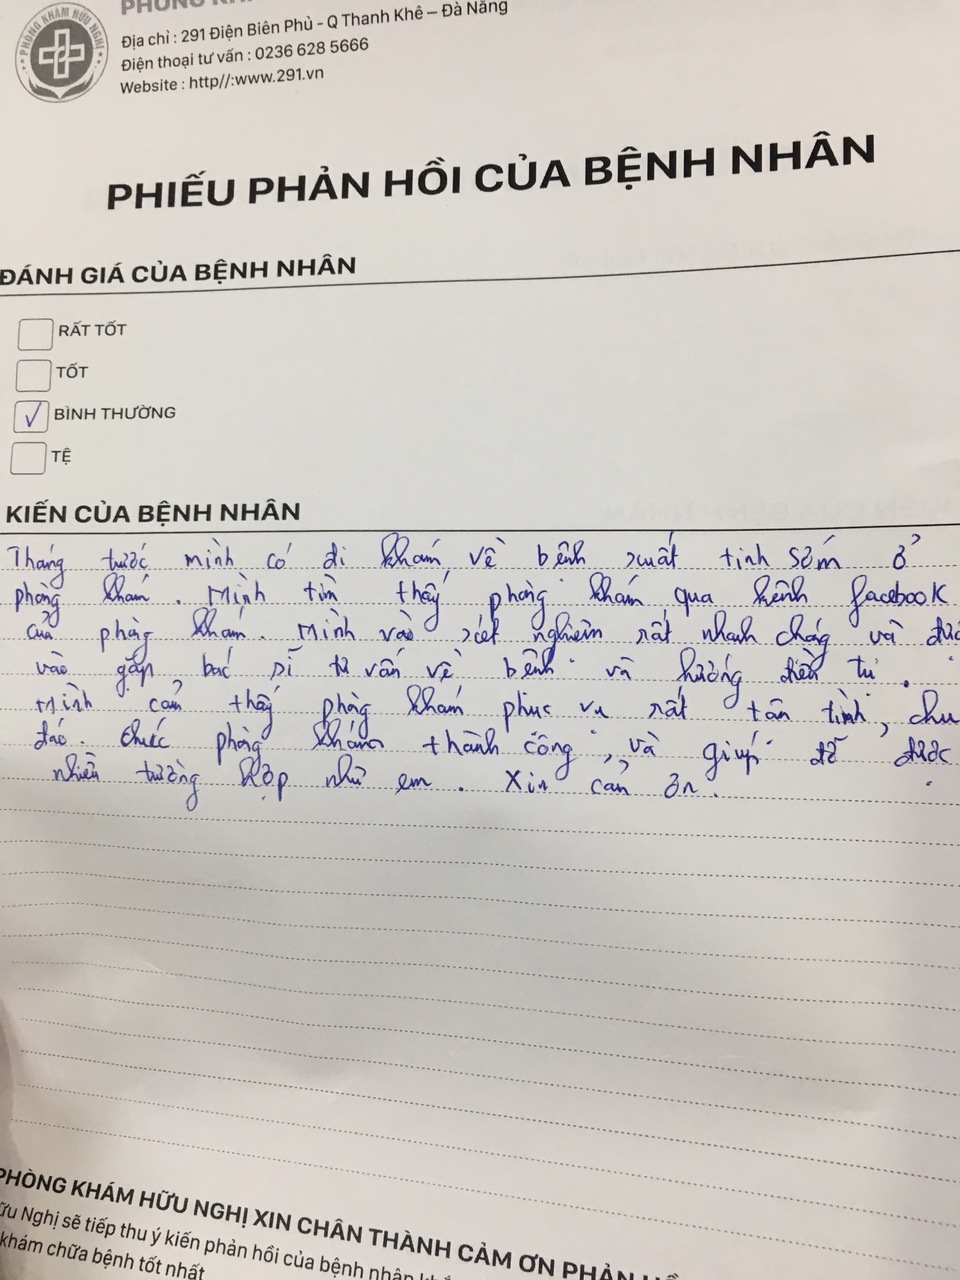 PHÒNG KHÁM HỮU NGHỊ
Địa chỉ : 291 Điện Biên Phủ - Q Thanh Khê – Đà Nẵng
Điện thoại tư vấn : 0236 628 5666
Website : http//:www.291.vn
PHIẾU PHẢN HỒI CỦA BỆNH NHÂN
ĐÁNH GIÁ CỦA BỆNH NHÂN
RẤT TỐT
TỐT
✓ BÌNH THƯỜNG
TỆ
KIẾN CỦA BỆNH NHÂN
Tháng trước mình có đi khám về bệnh xuất tinh sớm ở
phòng khám . Mình tìm thấy phòng khám qua kênh facebook
của phòng khám . Mình vào xét nghiệm rất nhanh chóng và đư
vào gặp bác sĩ tư vấn về bệnh và hướng điều trị .
Mình cảm thấy phòng khám phục vụ rất tận tình , chu
đáo . Chúc phòng khám thành công , và giúp đỡ được
nhiều trường hợp như em . Xin cảm ơn .
PHÒNG KHÁM HỮU NGHỊ XIN CHÂN THÀNH CẢM ƠN PHẢN
ữu Nghị sẽ tiếp thu ý kiến phản hồi của bệnh nhân
khám chữa bệnh tốt nhất